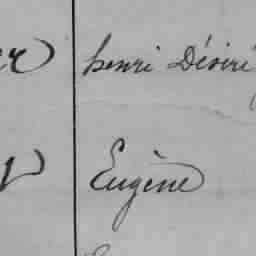 henri Désiré
Eugène